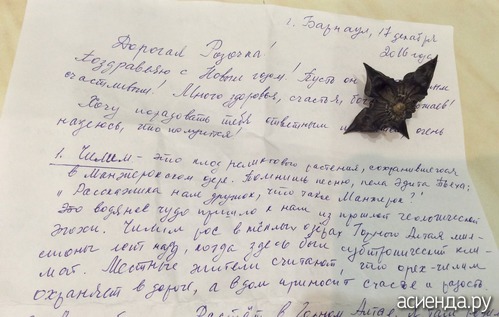 г. Барнаул, 17 декабря
2016 года
Дорогая Розочка!
Поздравляю с Новым годом! Пусть он
счастливым! Много здоровья, счастья,
Хочу порадовать тебя ответным очень
надеюсь, что получится!
1. Чилим – это плод реликтового растения, сохранившегося
в Манжерокском озере. Помнишь песню, пела Эдита Пьеха:
"Расскажи-ка нам, дружок, что такое Манжерок?"
Это водяное чудо пришло к нам из прошлой геологической
эпохи. Чилим рос в тёплых озёрах Горного Алтая мил-
лионы лет назад, когда здесь был субтропический кли-
мат. Местные жители считают, что орех-чилим
охраняет в дороге, а в дом приносит счастье и радость.
в Горном Алтае.
асиенда.ру